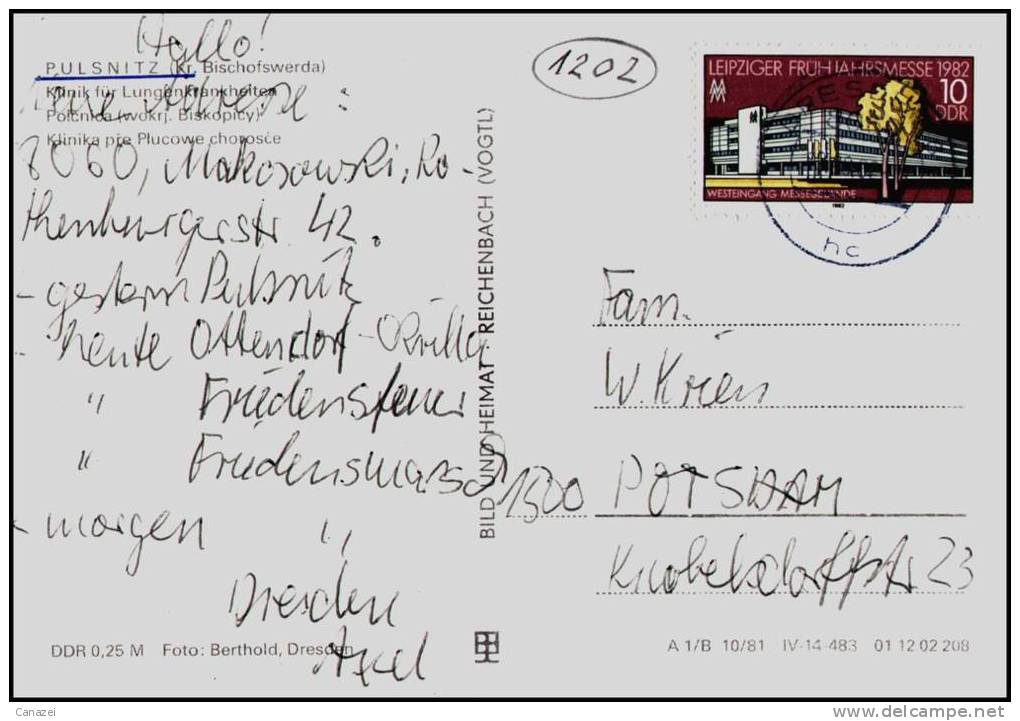 Hallo!
PULSNITZ (Kr. Bischofswerda)
Klinik für Lungenkrankheiten
Połčnica (wokrj. Biskopicy)
Klinika pře Płucowe chorosće
Neue Adresse:
8060, Makosowski, Ro-
thenburgerstr 42.
- gestern Pulsnitz
- heute Ottendorf-Okrilla
" Friedensfeuer
" Friedensmarsch
- morgen "
Dresden
Axel
DDR 0,25 M Foto: Berthold, Dresden
BILD UND HEIMAT REICHENBACH (VOGTL)
1202
LEIPZIGER FRÜHJAHRSMESSE 1982
10
DDR
WESTEINGANG MESSEGELÄNDE
1982
hc
Fam.
W. Krien
1500 POTSDAM
Knobelsdorffstr 23
A 1/B 10/81 IV-14-483 01 12 02 208
Canazei
http://www.delcampe.net